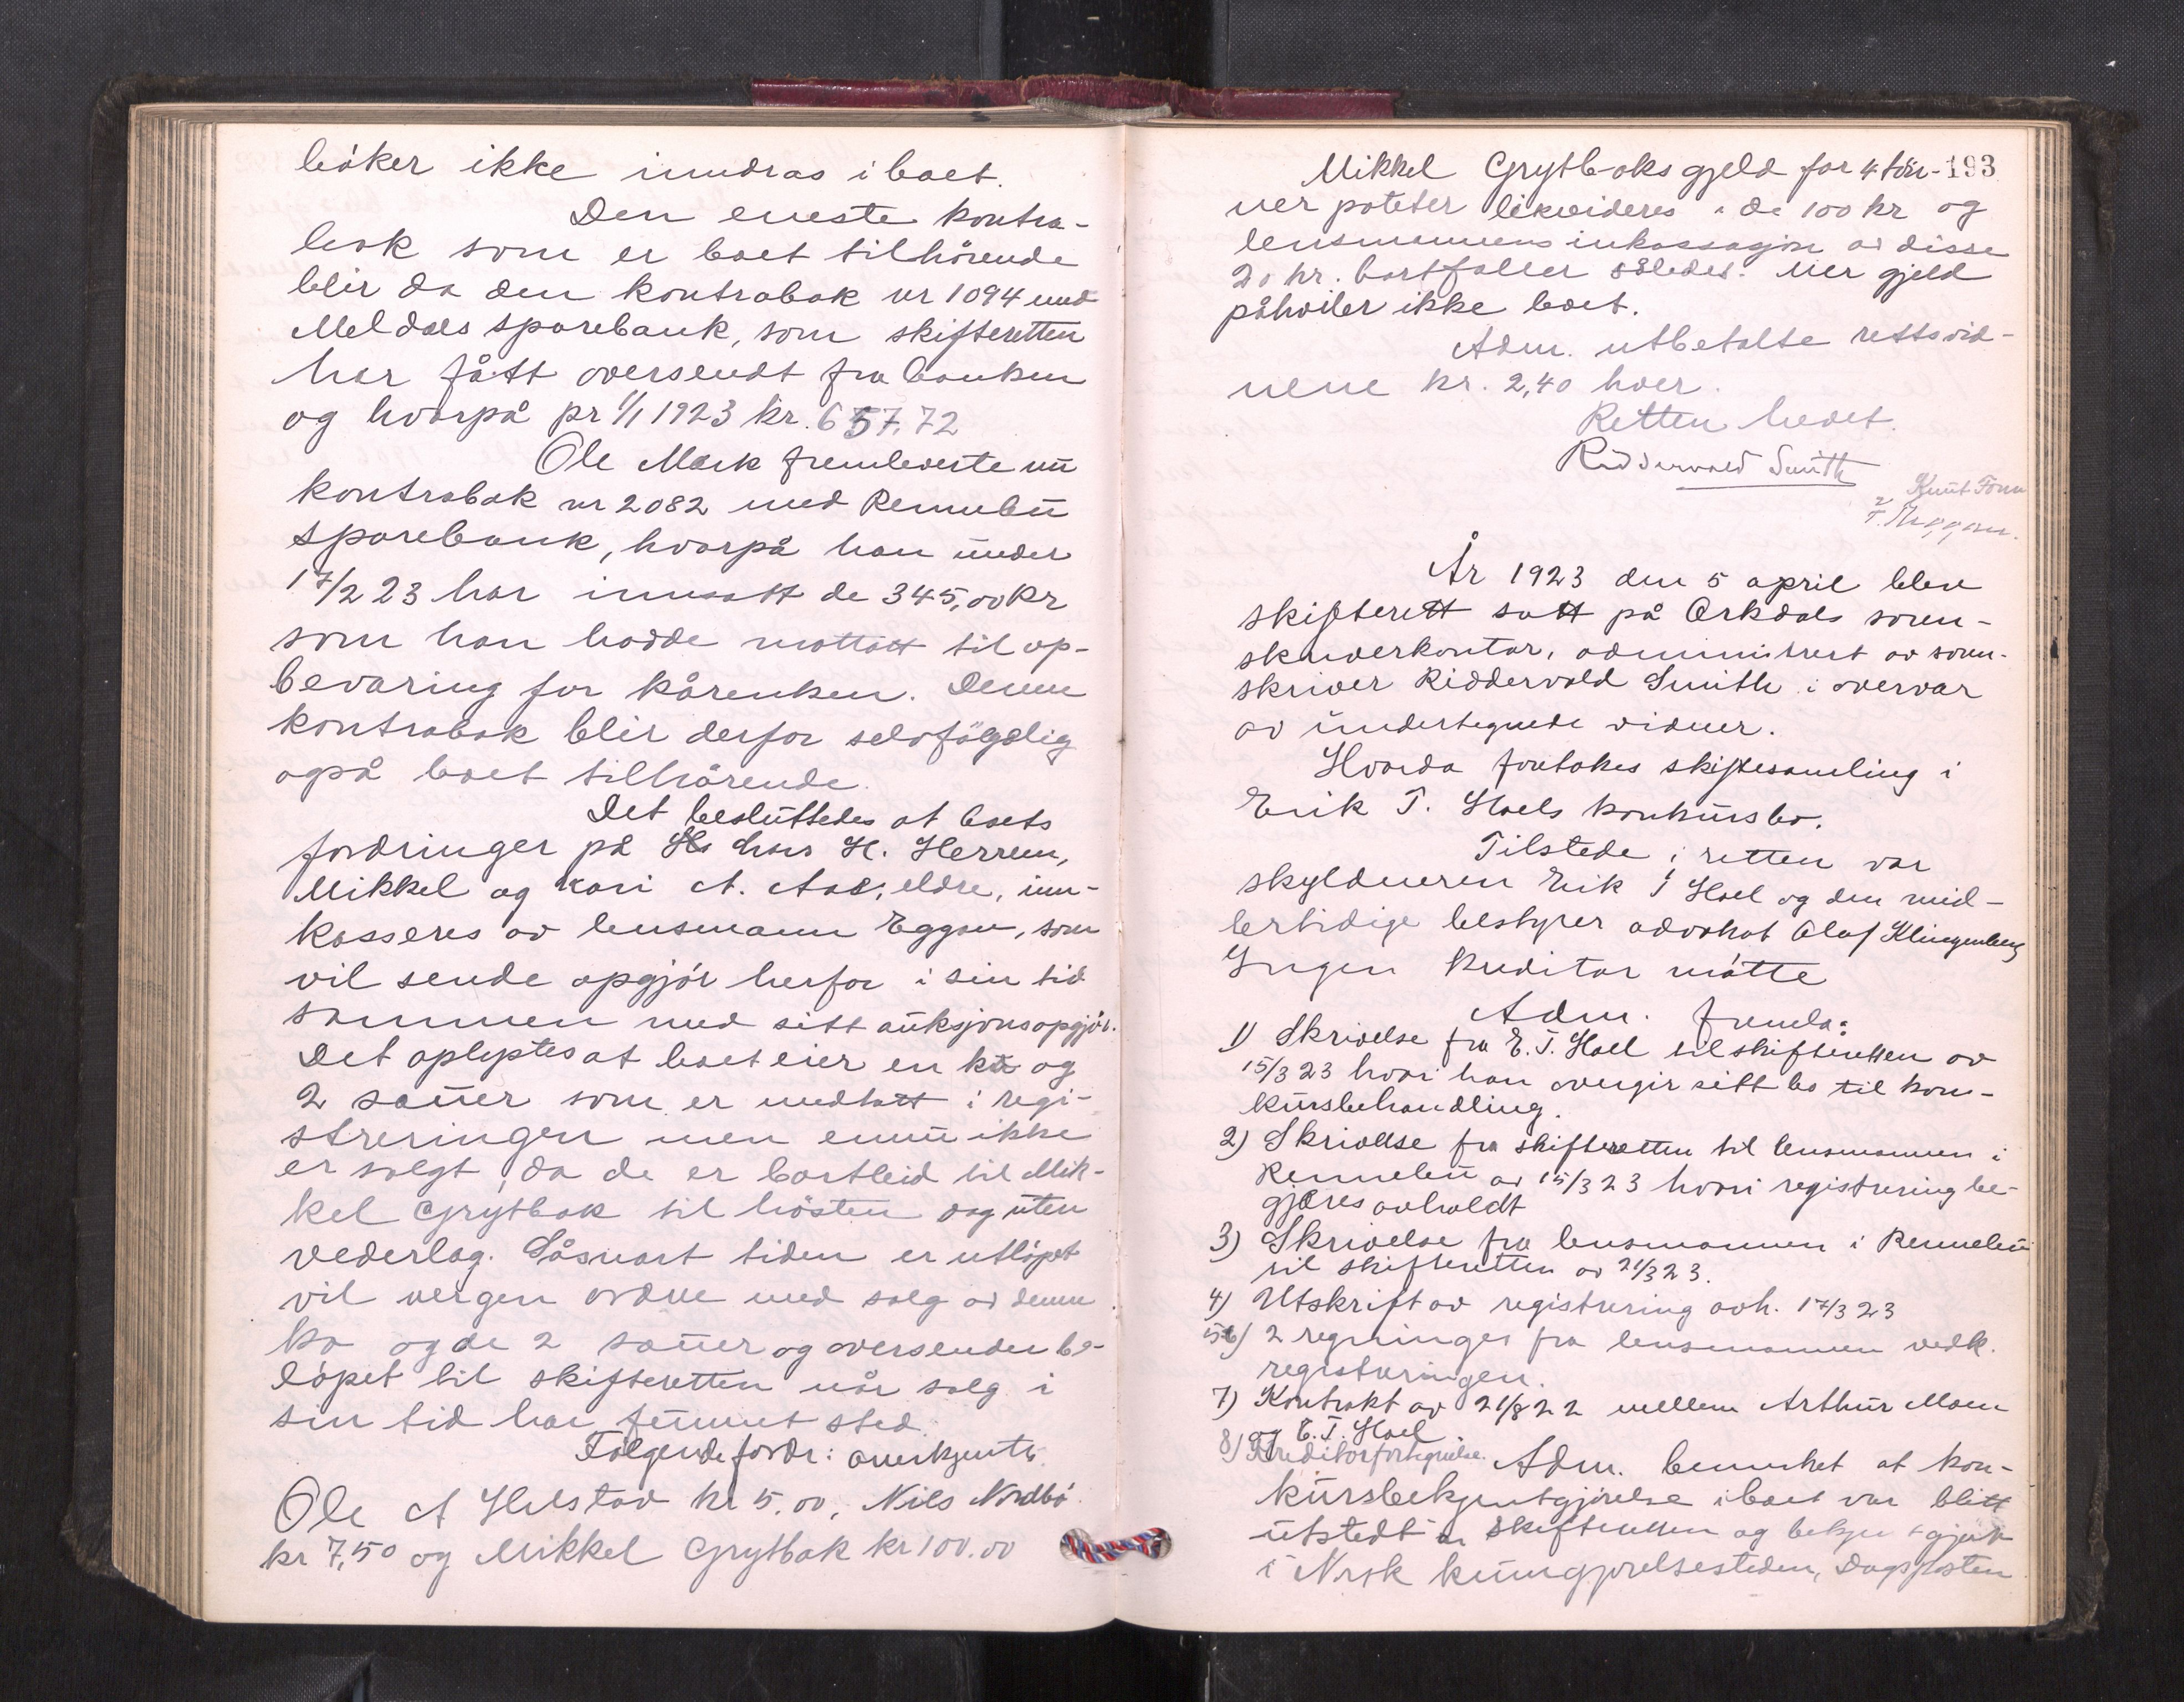 bøker ikke inndras i boet.
Den eneste kontra-
bok som er boet tilhörende
blir da den kontrabok nr 1094 med
Meldals sparebank, som skifteretten
har fått oversendt fra banken
og hvorpå pr 1/1 1923 kr. 657.72
Ole Mærk fremleverte nu
kontrabok nr 2082 med Rennebu
sparebank, hvorpå han under
17/2 23 har innsatt de 345,00 kr
som han hadde mottatt til op-
bevaring for kårenken. Denne
kontrabok blir derfor selvfölgelig
også boet tilhörende.
Det besluttedes at boets
fordringer på Hans H. Herrem,
Mikkel og Kari A. Aas, eldre, inn-
kasseres av lensmann Eggan, som
vil sende opgjör herfor i sin tid
sammen med sitt auksjonsopgjör.
Det oplystes at boet eier en ku og
2 sauer som er medtatt i regi-
streringen men ennu ikke
er solgt, da de er bortleid til Mik-
kel Grytbak til hösten og uten
vederlag. Såsnart tiden er utlöpet
vil vergen ordne med salg av denne
ko og de 2 sauer og oversender be-
löpet til skifteretten når salg i
sin tid har funnet sted.
Fölgende fordr: anerkjentes
Ole A Helstad kr 5.00, Nils Nordbö
kr 7,50 og Mikkel Grytbak kr 100.00
Mikkel Grytbaks gjeld for 4 tön- 193
ner poteter likvideres i de 100 kr og
lensmannens inkassasjon av disse
20 kr. bortfaller således. Mer gjeld
påhviler ikke boet.
Adm. utbetalte rettsvid-
nene kr. 2,40 hver.
Retten hevet.
Riddervold Smith
Knut
T. Eggan.
År 1923 den 5 april blev
skifterett satt på Orkdals soren-
skriverkontor, administrert av soren-
skriver Riddervold Smith i overvær
av undertegnede vidner.
Hvorda foretokes skiftesamling i
Erik T. Hoels konkursbo.
Tilstede i retten var
skyldneren Erik T Hoel og den mid-
lertidige bestyrer advokat Olaf Klingenberg
Ingen kreditor mötte
Adm. fremla:
1) Skrivelse fra E. T. Hoel til skifteretten av
15/3 23 hvori han overgir sitt bo til kon-
kursbehandling.
2) Skrivelse fra skifteretten til lensmannen i
Rennebu av 15/3 23 hvori registrering be-
gjæres avholdt
3) Skrivelse fra lensmannen i Rennebu
til skifteretten av 21/3 23.
4) Utskrift av registrering avh. 17/3 23
5-6) 2 regninger fra lensmannen vedk.
registreringen.
7) Kontrakt av 21/8 22 mellem Arthur Moen
og E. T. Hoel
8) Kreditorfortegnelse. Adm. bemerket at kon-
kursbekjentgjörelse i boet var blitt
utstedt av skifteretten og bekjentgjort
i Norsk kunngjörelsestidende, Dagsposten